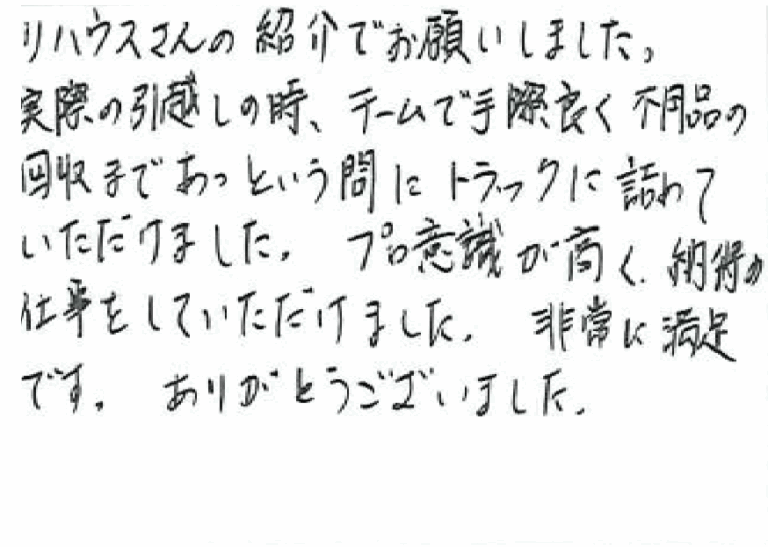 リハウスさんの紹介でお願いしました。
実際の引越しの時、チームで手際良く不用品の
回収まであっという間にトラックに詰めて
いただけました。プロ意識が高く、納得の
仕事をしていただけました。非常に満足
です。ありがとうございました。